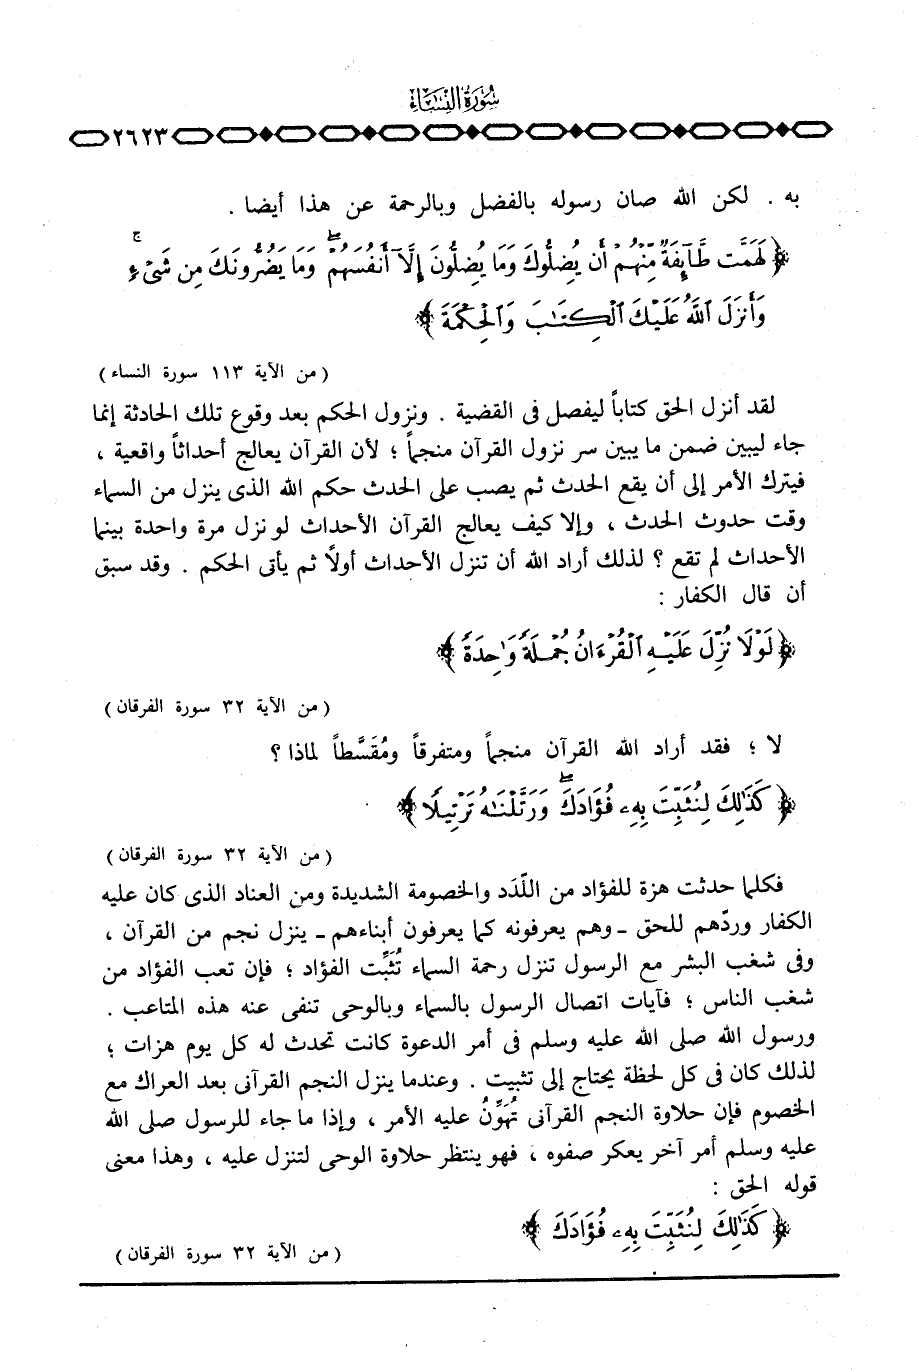 سورة النساء
٢٦٢٣
به . لكن الله صان رسوله بالفضل وبالرحمة عن هذا أيضا .
﴿ لَهَمَّت طَّآئِفَةٌ مِّنْهُمْ أَن يُضِلُّوكَ وَمَا يُضِلُّونَ إِلَّآ أَنفُسَهُمْ ۖ وَمَا يَضُرُّونَكَ مِن شَىْءٍ ۚ
وَأَنزَلَ ٱللَّهُ عَلَيْكَ ٱلْكِتَٰبَ وَٱلْحِكْمَةَ ﴾
( من الآية ١١٣ سورة النساء )
لقد أنزل الحق كتاباً ليفصل فى القضية . ونزول الحكم بعد وقوع تلك الحادثة إنما
جاء ليبين ضمن ما يبين سر نزول القرآن منجماً ؛ لأن القرآن يعالج أحداثاً واقعية ،
فيترك الأمر إلى أن يقع الحدث ثم يصب على الحدث حكم الله الذى ينزل من السماء
وقت حدوث الحدث ، وإلا كيف يعالج القرآن الأحداث لو نزل مرة واحدة بينما
الأحداث لم تقع ؟ لذلك أراد الله أن تنزل الأحداث أولاً ثم يأتى الحكم . وقد سبق
أن قال الكفار :
﴿ لَوْلَا نُزِّلَ عَلَيْهِ ٱلْقُرْءَانُ جُمْلَةً وَٰحِدَةً ﴾
( من الآية ٣٢ سورة الفرقان )
لا ؛ فقد أراد الله القرآن منجماً ومتفرقاً ومُقَسَّطاً لماذا ؟
﴿ كَذَٰلِكَ لِنُثَبِّتَ بِهِۦ فُؤَادَكَ ۖ وَرَتَّلْنَٰهُ تَرْتِيلًا ﴾
( من الآية ٣٢ سورة الفرقان )
فكلما حدثت هزة للفؤاد من اللّدَد والخصومة الشديدة ومن العناد الذى كان عليه
الكفار وردّهم للحق ـ وهم يعرفونه كما يعرفون أبناءهم ـ ينزل نجم من القرآن ،
وفى شغب البشر مع الرسول تنزل رحمة السماء تُثَبِّت الفؤاد ؛ فإن تعب الفؤاد من
شغب الناس ؛ فآيات اتصال الرسول بالسماء وبالوحى تنفى عنه هذه المتاعب .
ورسول الله صلى الله عليه وسلم فى أمر الدعوة كانت تحدث له كل يوم هزات ؛
لذلك كان فى كل لحظة يحتاج إلى تثبيت . وعندما ينزل النجم القرآنى بعد العراك مع
الخصوم فإن حلاوة النجم القرآنى تُهَوِّنُ عليه الأمر ، وإذا ما جاء للرسول صلى الله
عليه وسلم أمر آخر يعكر صفوه ، فهو ينتظر حلاوة الوحى لتنزل عليه ، وهذا معنى
قوله الحق :
﴿ كَذَٰلِكَ لِنُثَبِّتَ بِهِۦ فُؤَادَكَ ﴾
( من الآية ٣٢ سورة الفرقان )